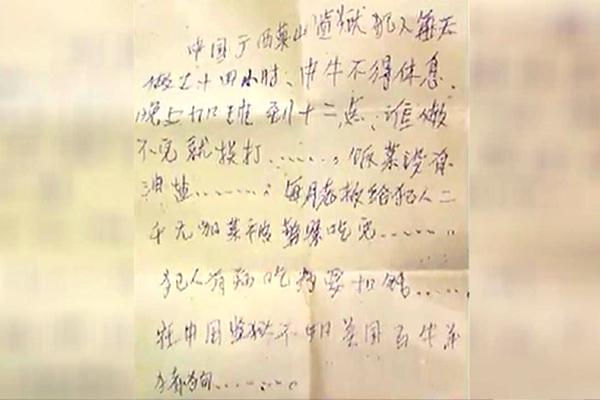 中国广西英山监狱犯人每天
做工十四小时、中午不得休息、
晚上加班到十二点，谁做
不完就挨打……，饭菜没有
油盐……，每月老板给犯人二
千元加菜被警察吃完……。
犯人有病吃药要扣钱……
在中国监狱不如美国马牛羊
狗……。